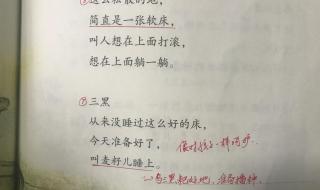 ⑥这么松散的地,
简直是一张软床,
叫人想在上面打滚,
想在上面躺一躺。
⑦三黑
从来没睡过这么好的床,
今天准备好了, 像对孩子一样呵护.
叫麦籽儿睡上。
写三黑耙好地,准备播种.